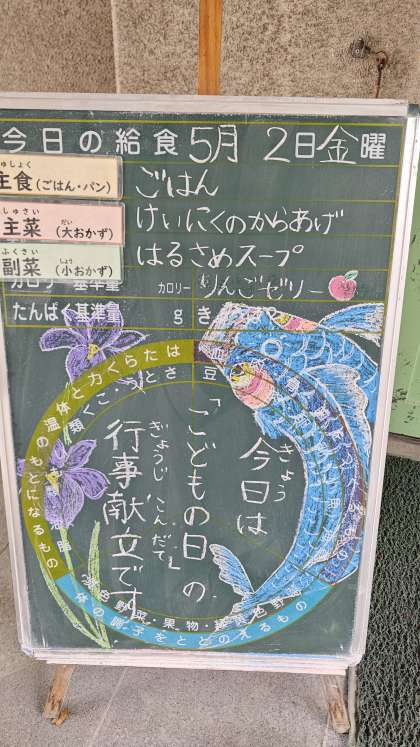 今日の給食 5月 2日 金曜
しゅしょく
主食(ごはん・パン)
ごはん
しゅさい だい
主菜(大おかず)
けいにくのからあげ
ふくさい しょう
副菜(小おかず)
はるさめスープ
カロリー 基準量 カロリー りんごゼリー
たんぱく基準量 g き
はたらくカと体温のもとになるもの
きょう
今日は
「こどもの日」の
ぎょうじ こんだて
行事献立です
体の調子をととのえるもの